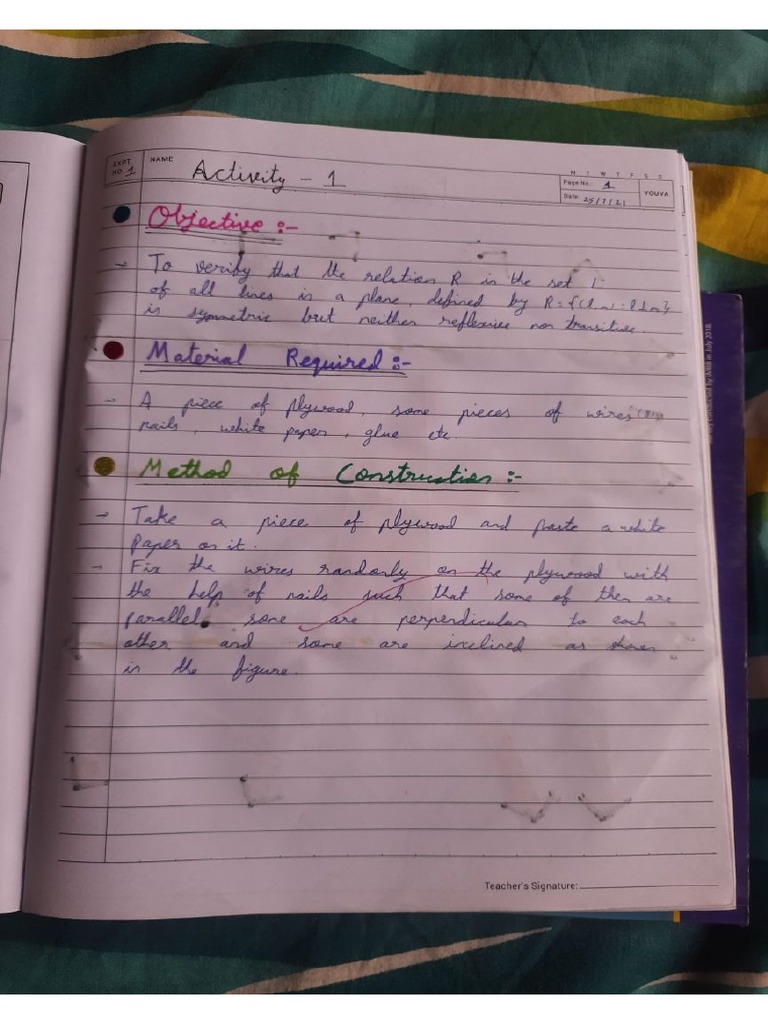 EXPT. NO. 1 NAME Activity - 1
M T W T F S S
Page No.: 1
Date: 25/7/21
YOUVA
Objective :-
→ To verify that the relation R in the set L
of all lines in a plane, defined by R = {(l, m) : l ⊥ m}
is symmetric but neither reflexive nor transitive.
Material Required :-
→ A piece of plywood, some pieces of wires
nails, white paper, glue etc.
Method of Construction :-
→ Take a piece of plywood and paste a white
paper on it.
→ Fix the wires randomly on the plywood with
the help of nails such that some of them are
parallel, some are perpendicular to each
other and some are inclined as shown
in the figure.
Teacher's Signature: